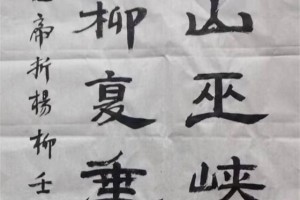 山巫峡
柳复垂
帝折楊柳壬